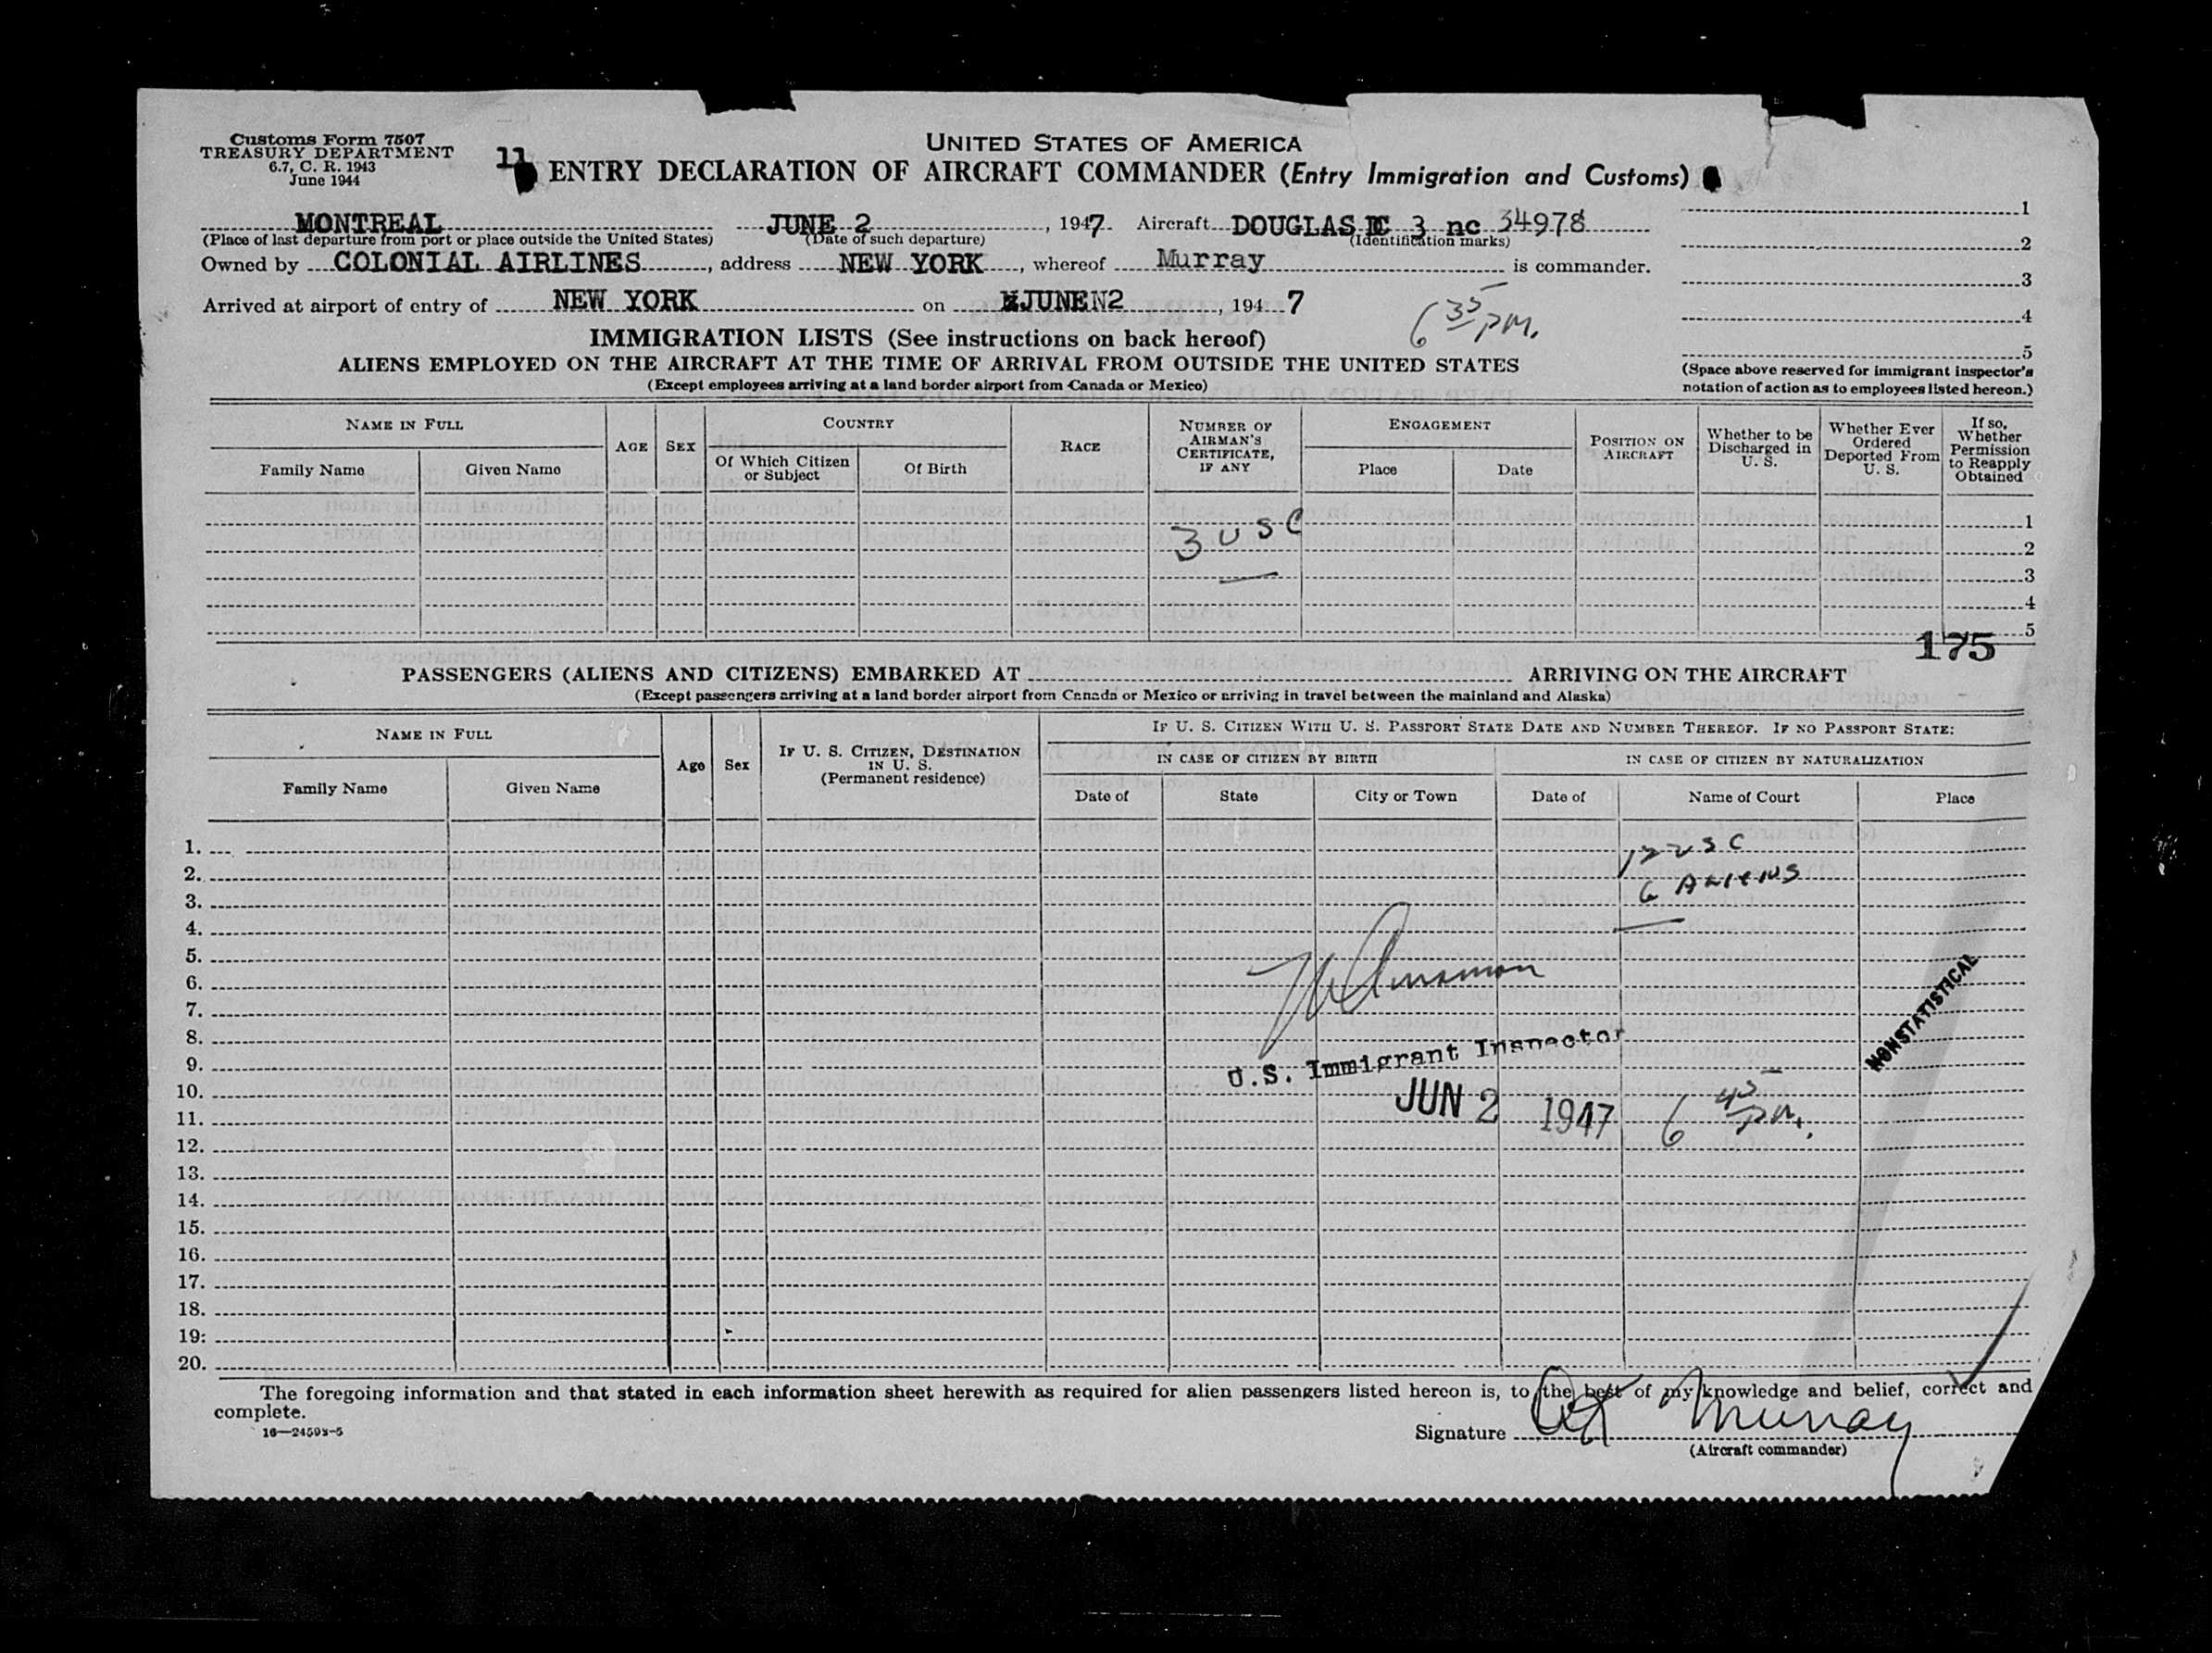 Customs Form 7507
TREASURY DEPARTMENT
6.7, C. R. 1943
June 1944
11
UNITED STATES OF AMERICA
ENTRY DECLARATION OF AIRCRAFT COMMANDER (Entry Immigration and Customs)
MONTREAL JUNE 2, 1947 Aircraft DOUGLAS DC 3 nc 34978
(Place of last departure from port or place outside the United States) (Date of such departure) (Identification marks)
Owned by COLONIAL AIRLINES, address NEW YORK, whereof Murray is commander.
Arrived at airport of entry of NEW YORK on JUNE 2, 1947
6 35 PM.
1
2
3
4
5
(Space above reserved for immigrant inspector's
notation of action as to employees listed hereon.)
IMMIGRATION LISTS (See instructions on back hereof)
ALIENS EMPLOYED ON THE AIRCRAFT AT THE TIME OF ARRIVAL FROM OUTSIDE THE UNITED STATES
(Except employees arriving at a land border airport from Canada or Mexico)
NAME IN FULL
Family Name Given Name
AGE SEX
COUNTRY
Of Which Citizen or Subject
Of Birth
RACE
NUMBER OF AIRMAN'S CERTIFICATE, IF ANY
ENGAGEMENT
Place Date
POSITION ON AIRCRAFT
Whether to be Discharged in U. S.
Whether Ever Ordered Deported From U. S.
If so, Whether Permission to Reapply Obtained
3 USC
1
2
3
4
5
175
PASSENGERS (ALIENS AND CITIZENS) EMBARKED AT ARRIVING ON THE AIRCRAFT
(Except passengers arriving at a land border airport from Canada or Mexico or arriving in travel between the mainland and Alaska)
NAME IN FULL
Family Name Given Name
Age Sex
IF U. S. CITIZEN, DESTINATION IN U. S.
(Permanent residence)
IF U. S. CITIZEN WITH U. S. PASSPORT STATE DATE AND NUMBER THEREOF. IF NO PASSPORT STATE:
IN CASE OF CITIZEN BY BIRTH IN CASE OF CITIZEN BY NATURALIZATION
Date of State City or Town Date of Name of Court Place
1.
2.
3.
4.
5.
6.
7.
8.
9.
10.
11.
12.
13.
14.
15.
16.
17.
18.
19.
20.
USC
6 ALIENS
NONSTATISTICAL
U.S. Immigrant Inspector
JUN 2 1947 6 45 PM.
The foregoing information and that stated in each information sheet herewith as required for alien passengers listed hereon is, to the best of my knowledge and belief, correct and
complete.
16—24593-5
Signature Murray
(Aircraft commander)